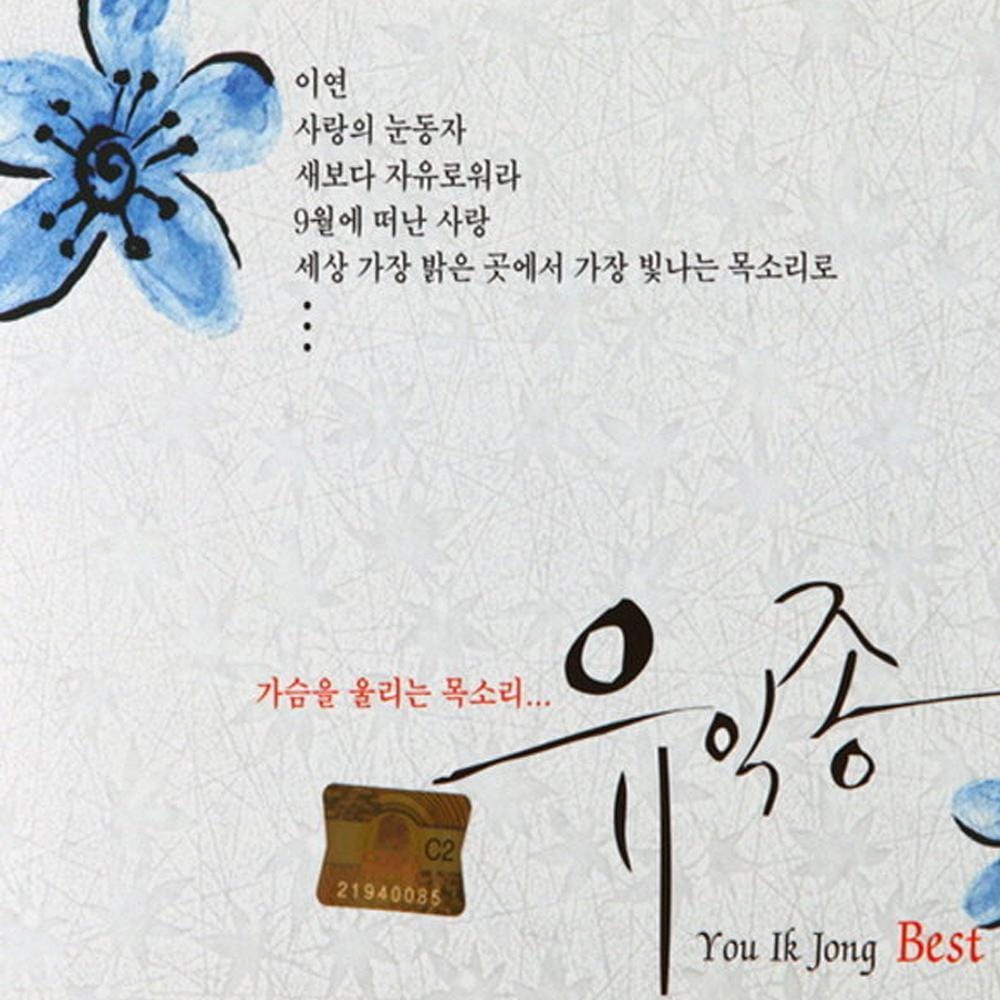 이연
사랑의 눈동자
새보다 자유로워라
9월에 떠난 사랑
세상 가장 밝은 곳에서 가장 빛나는 목소리로
가슴을 울리는 목소리...
유익종
C2
21940085
You Ik Jong Best